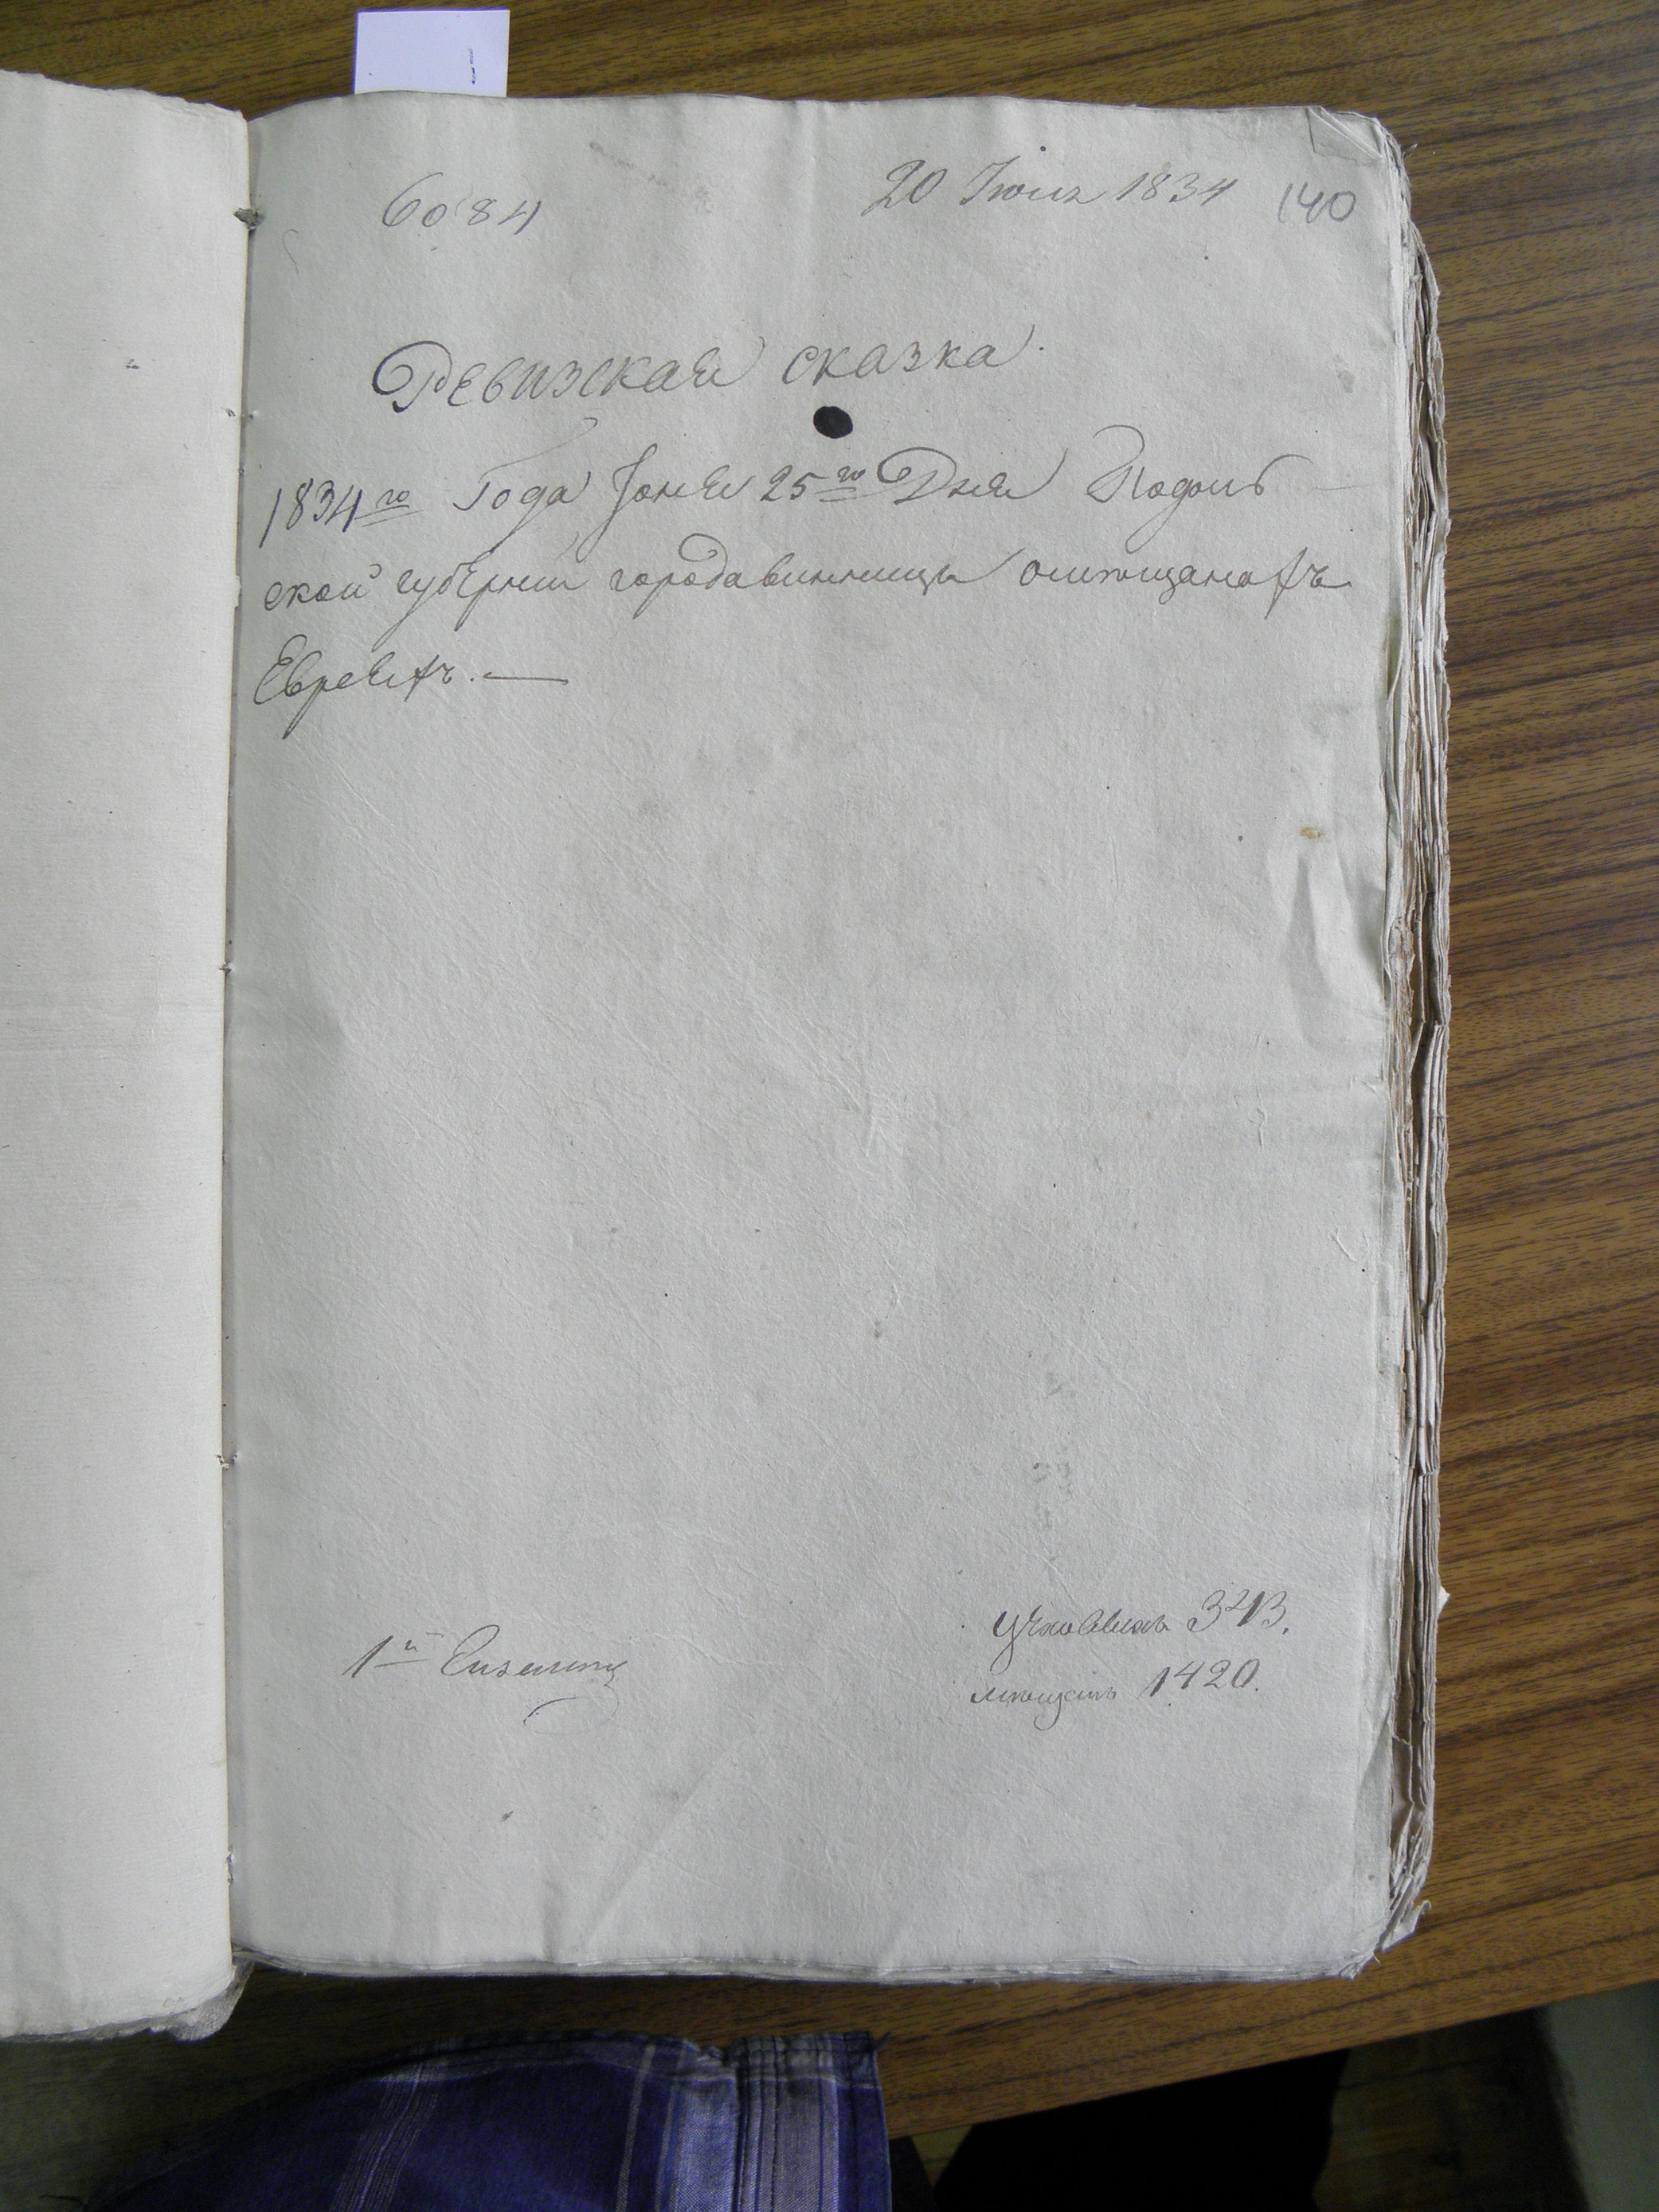 6084
20 Июля 1834
140
Ревизская сказка.
1834го Года Іюня 25го Дня Подоль
ской губерний города винницы омѣщанахъ
Евреяхъ. —
1й Экземпл
343.
мѣщанъ 1420.